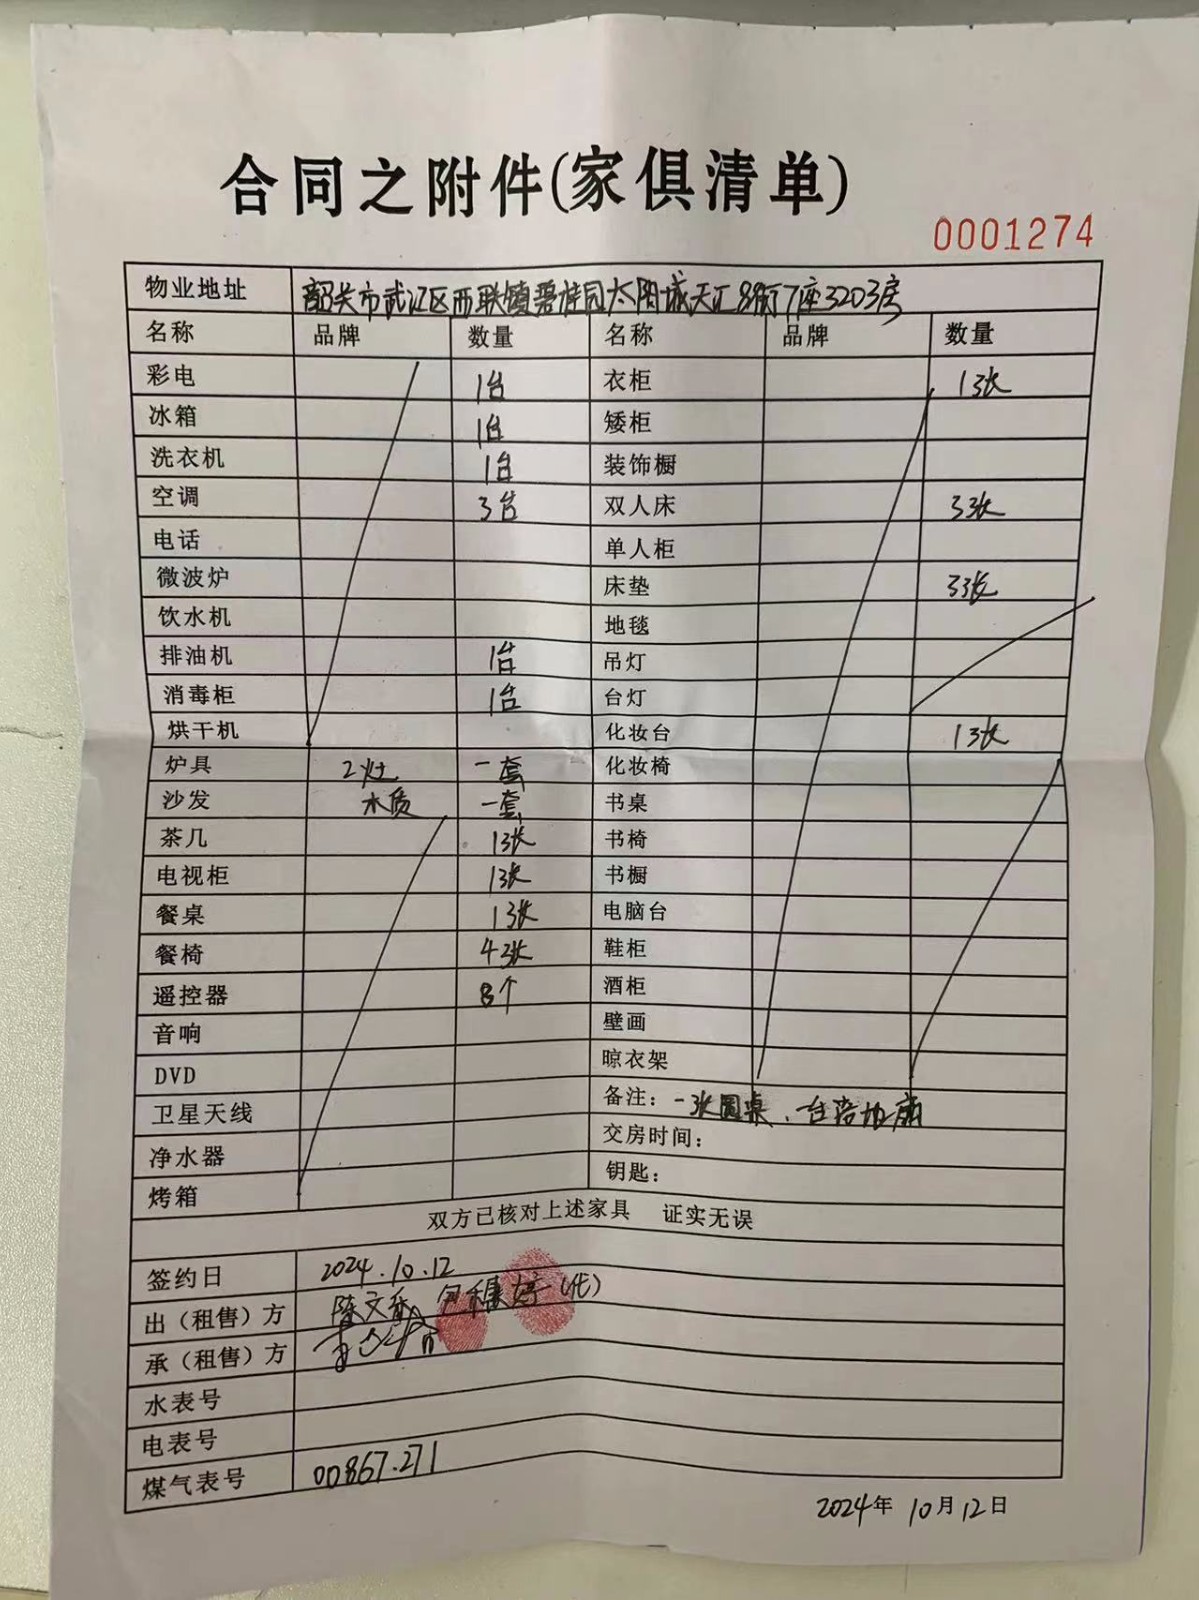 合同之附件(家俱清单)
0001274
物业地址 韶关市武江区西联镇碧桂园太阳城天汇8街7座3203房
名称 品牌 数量 名称 品牌 数量
彩电 1台 衣柜 1张
冰箱 1台 矮柜
洗衣机 1台 装饰橱
空调 3台 双人床 3张
电话 单人柜
微波炉 床垫 3张
饮水机 地毯
排油机 1台 吊灯
消毒柜 1台 台灯
烘干机 化妆台 1张
炉具 2灶 一套 化妆椅
沙发 木质 一套 书桌
茶几 1张 书椅
电视柜 1张 书橱
餐桌 1张 电脑台
餐椅 4张 鞋柜
遥控器 8个 酒柜
音响 壁画
DVD 晾衣架
卫星天线 备注：一张圆桌、一台落地扇
净水器 交房时间：
烤箱 钥匙：
双方已核对上述家具 证实无误
签约日 2024.10.12
出（租售）方 陈文 (代)
承（租售）方
水表号
电表号
煤气表号 00867.271
2024年 10月12日